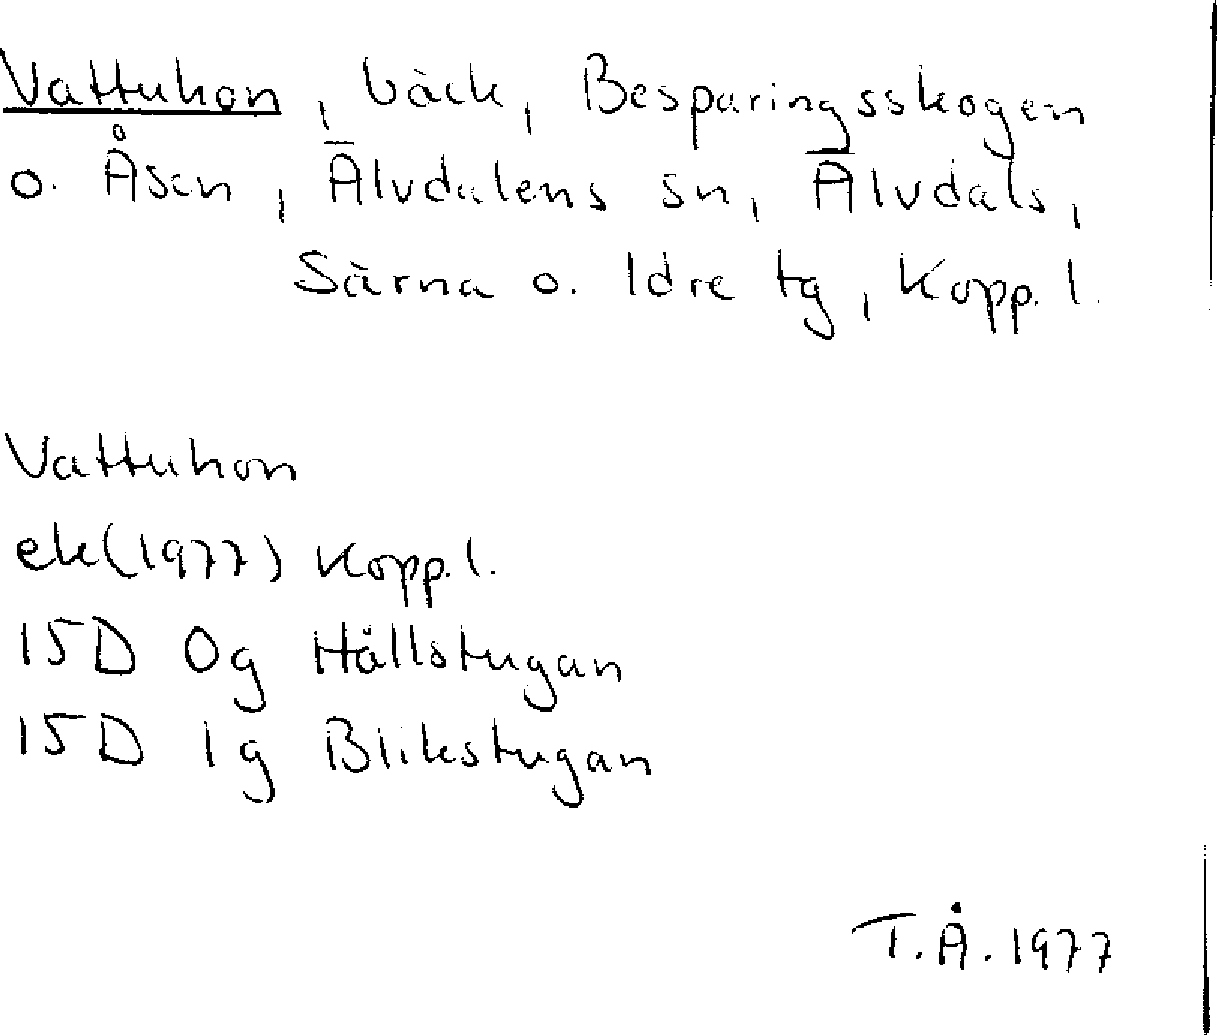 Vattuhon, bäck, Besparingsskogen
o. Åsen, Älvdalens sn, Älvdals,
Särna o. Idre tg, Kopp. l.
Vattuhon
ek(1977) Kopp. l.
15D 0g Hällstugan
15D 1g Blikstugan
T.Å. 1977